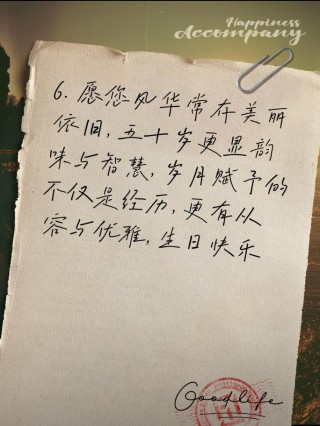 Happiness
Accompany
6. 愿您风华常在美丽
依旧，五十岁更显韵
味与智慧，岁月赋予的
不仅是经历，更有从
容与优雅，生日快乐
Goodlife